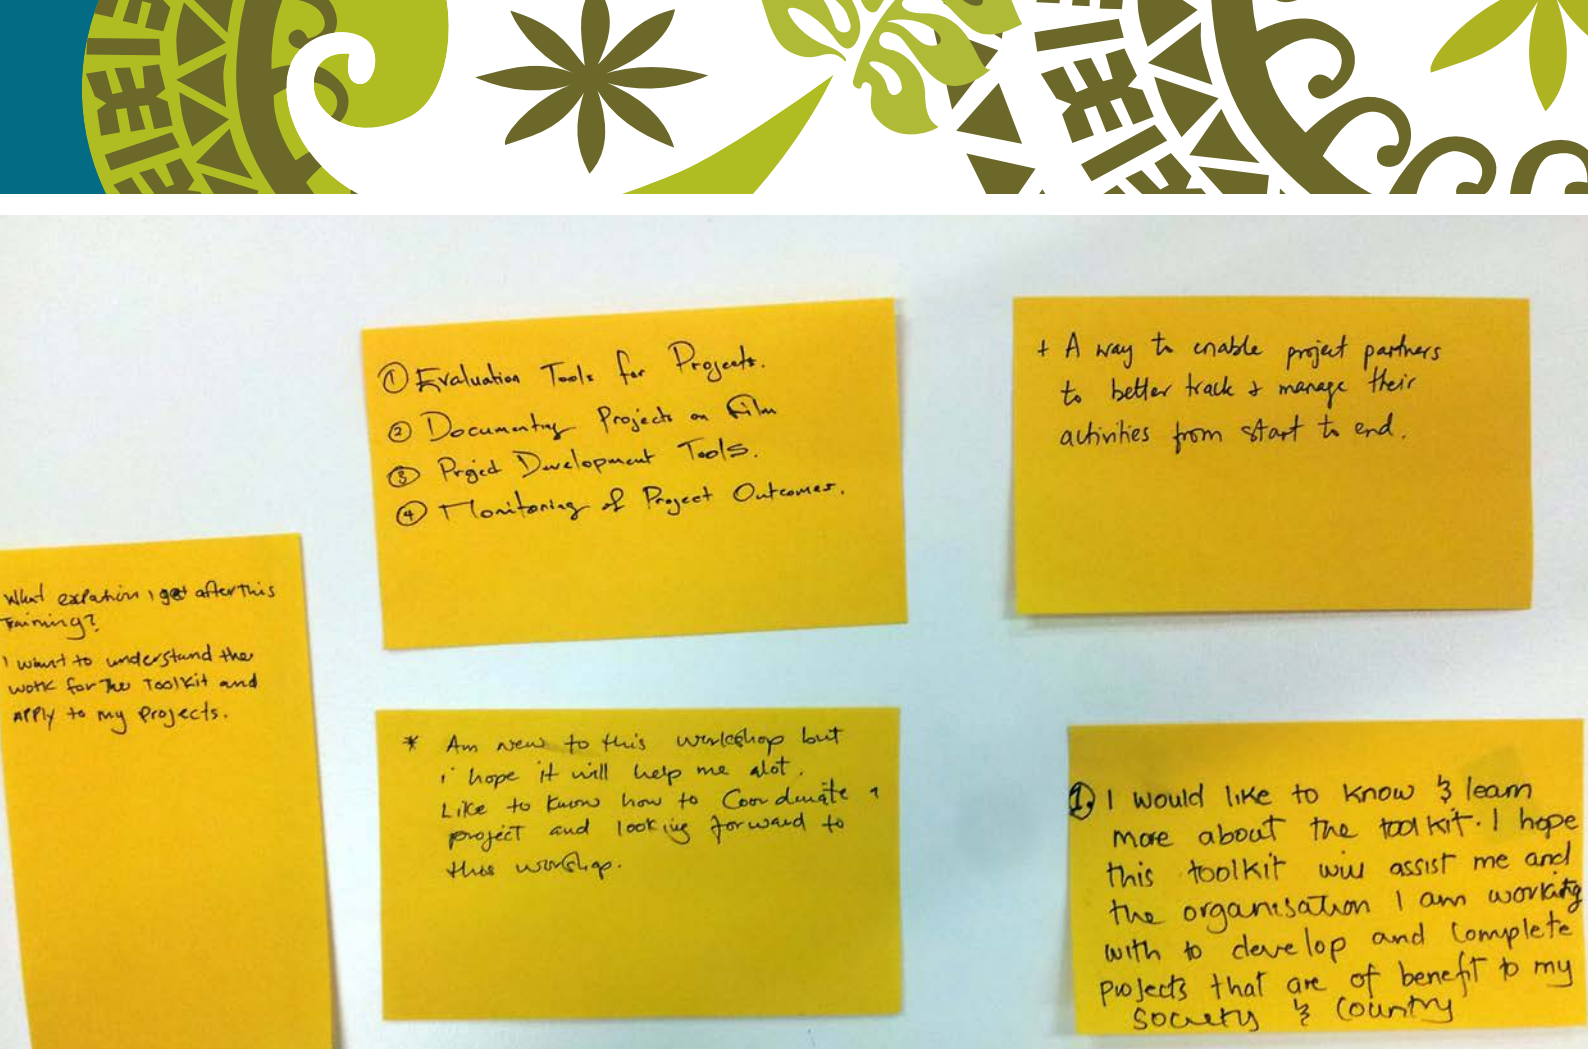 ① Evaluation Tools for Projects.
② Documenting Projects on Film
③ Project Development Tools.
④ Monitoring of Project Outcomes.
+ A way to enable project partners
to better track & manage their
activities from start to end.
What expation i get after this
Training?
I want to understand the
work for the Toolkit and
apply to my projects.
* Am new to this workshop but
i hope it will help me alot.
Like to know how to Coordinate a
project and looking forward to
this workshop.
1. I would like to know & learn
more about the toolkit. I hope
this toolkit will assist me and
the organisation I am working
with to develop and complete
projects that are of benefit to my
society & country